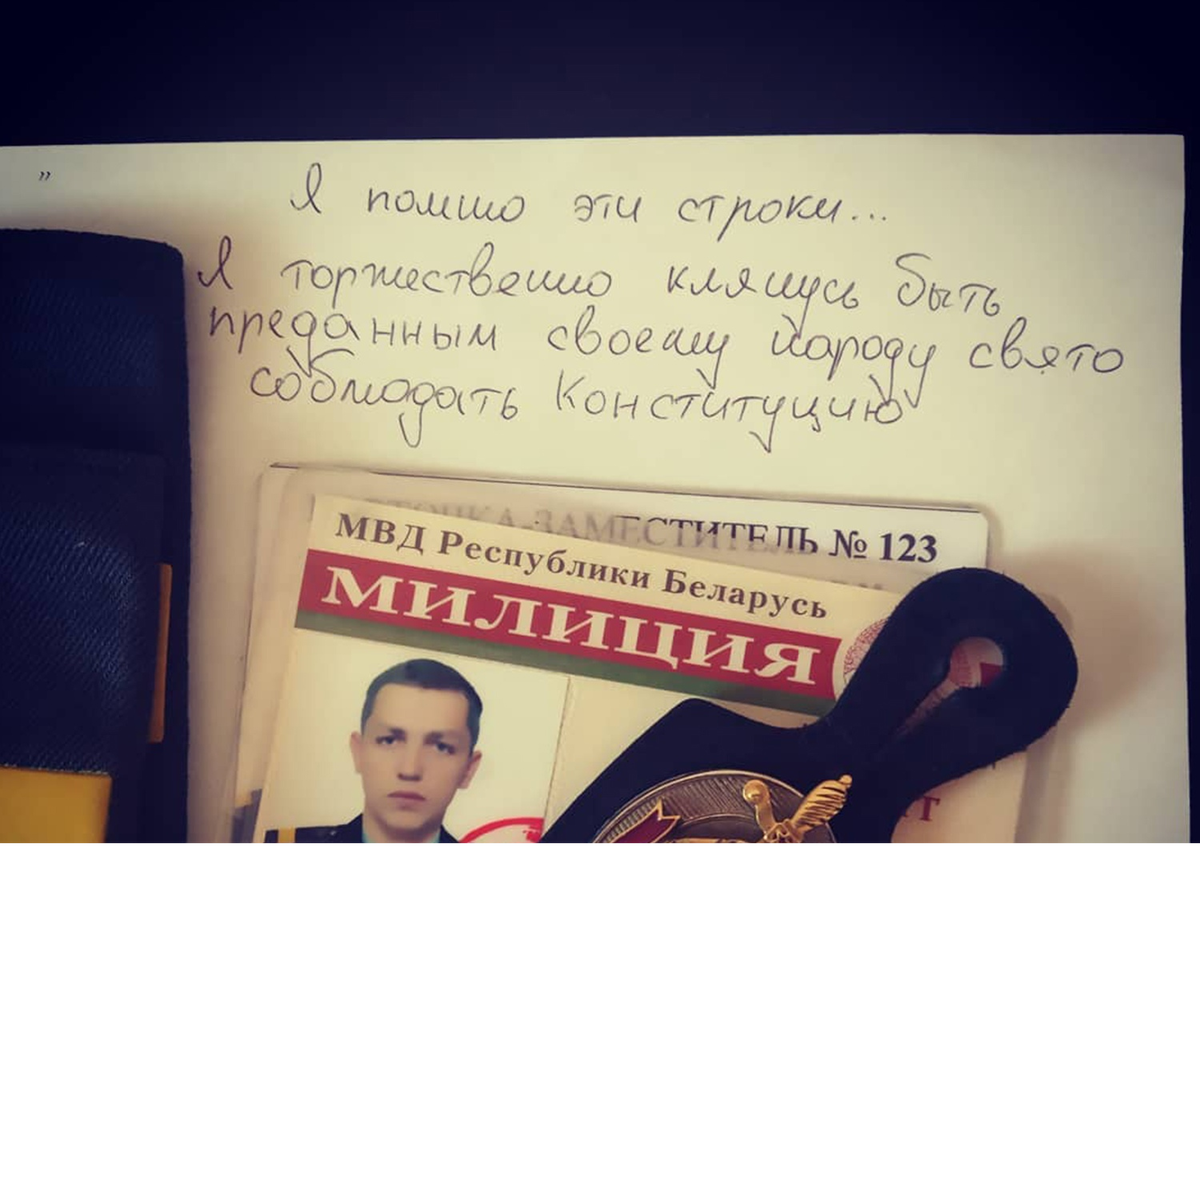 ”
Я помню эти строки...
Я торжественно клянусь быть
преданным своему народу свято
соблюдать Конституцию
КАРТОЧКА-ЗАМЕСТИТЕЛЬ № 123
МВД Республики Беларусь
МИЛИЦИЯ